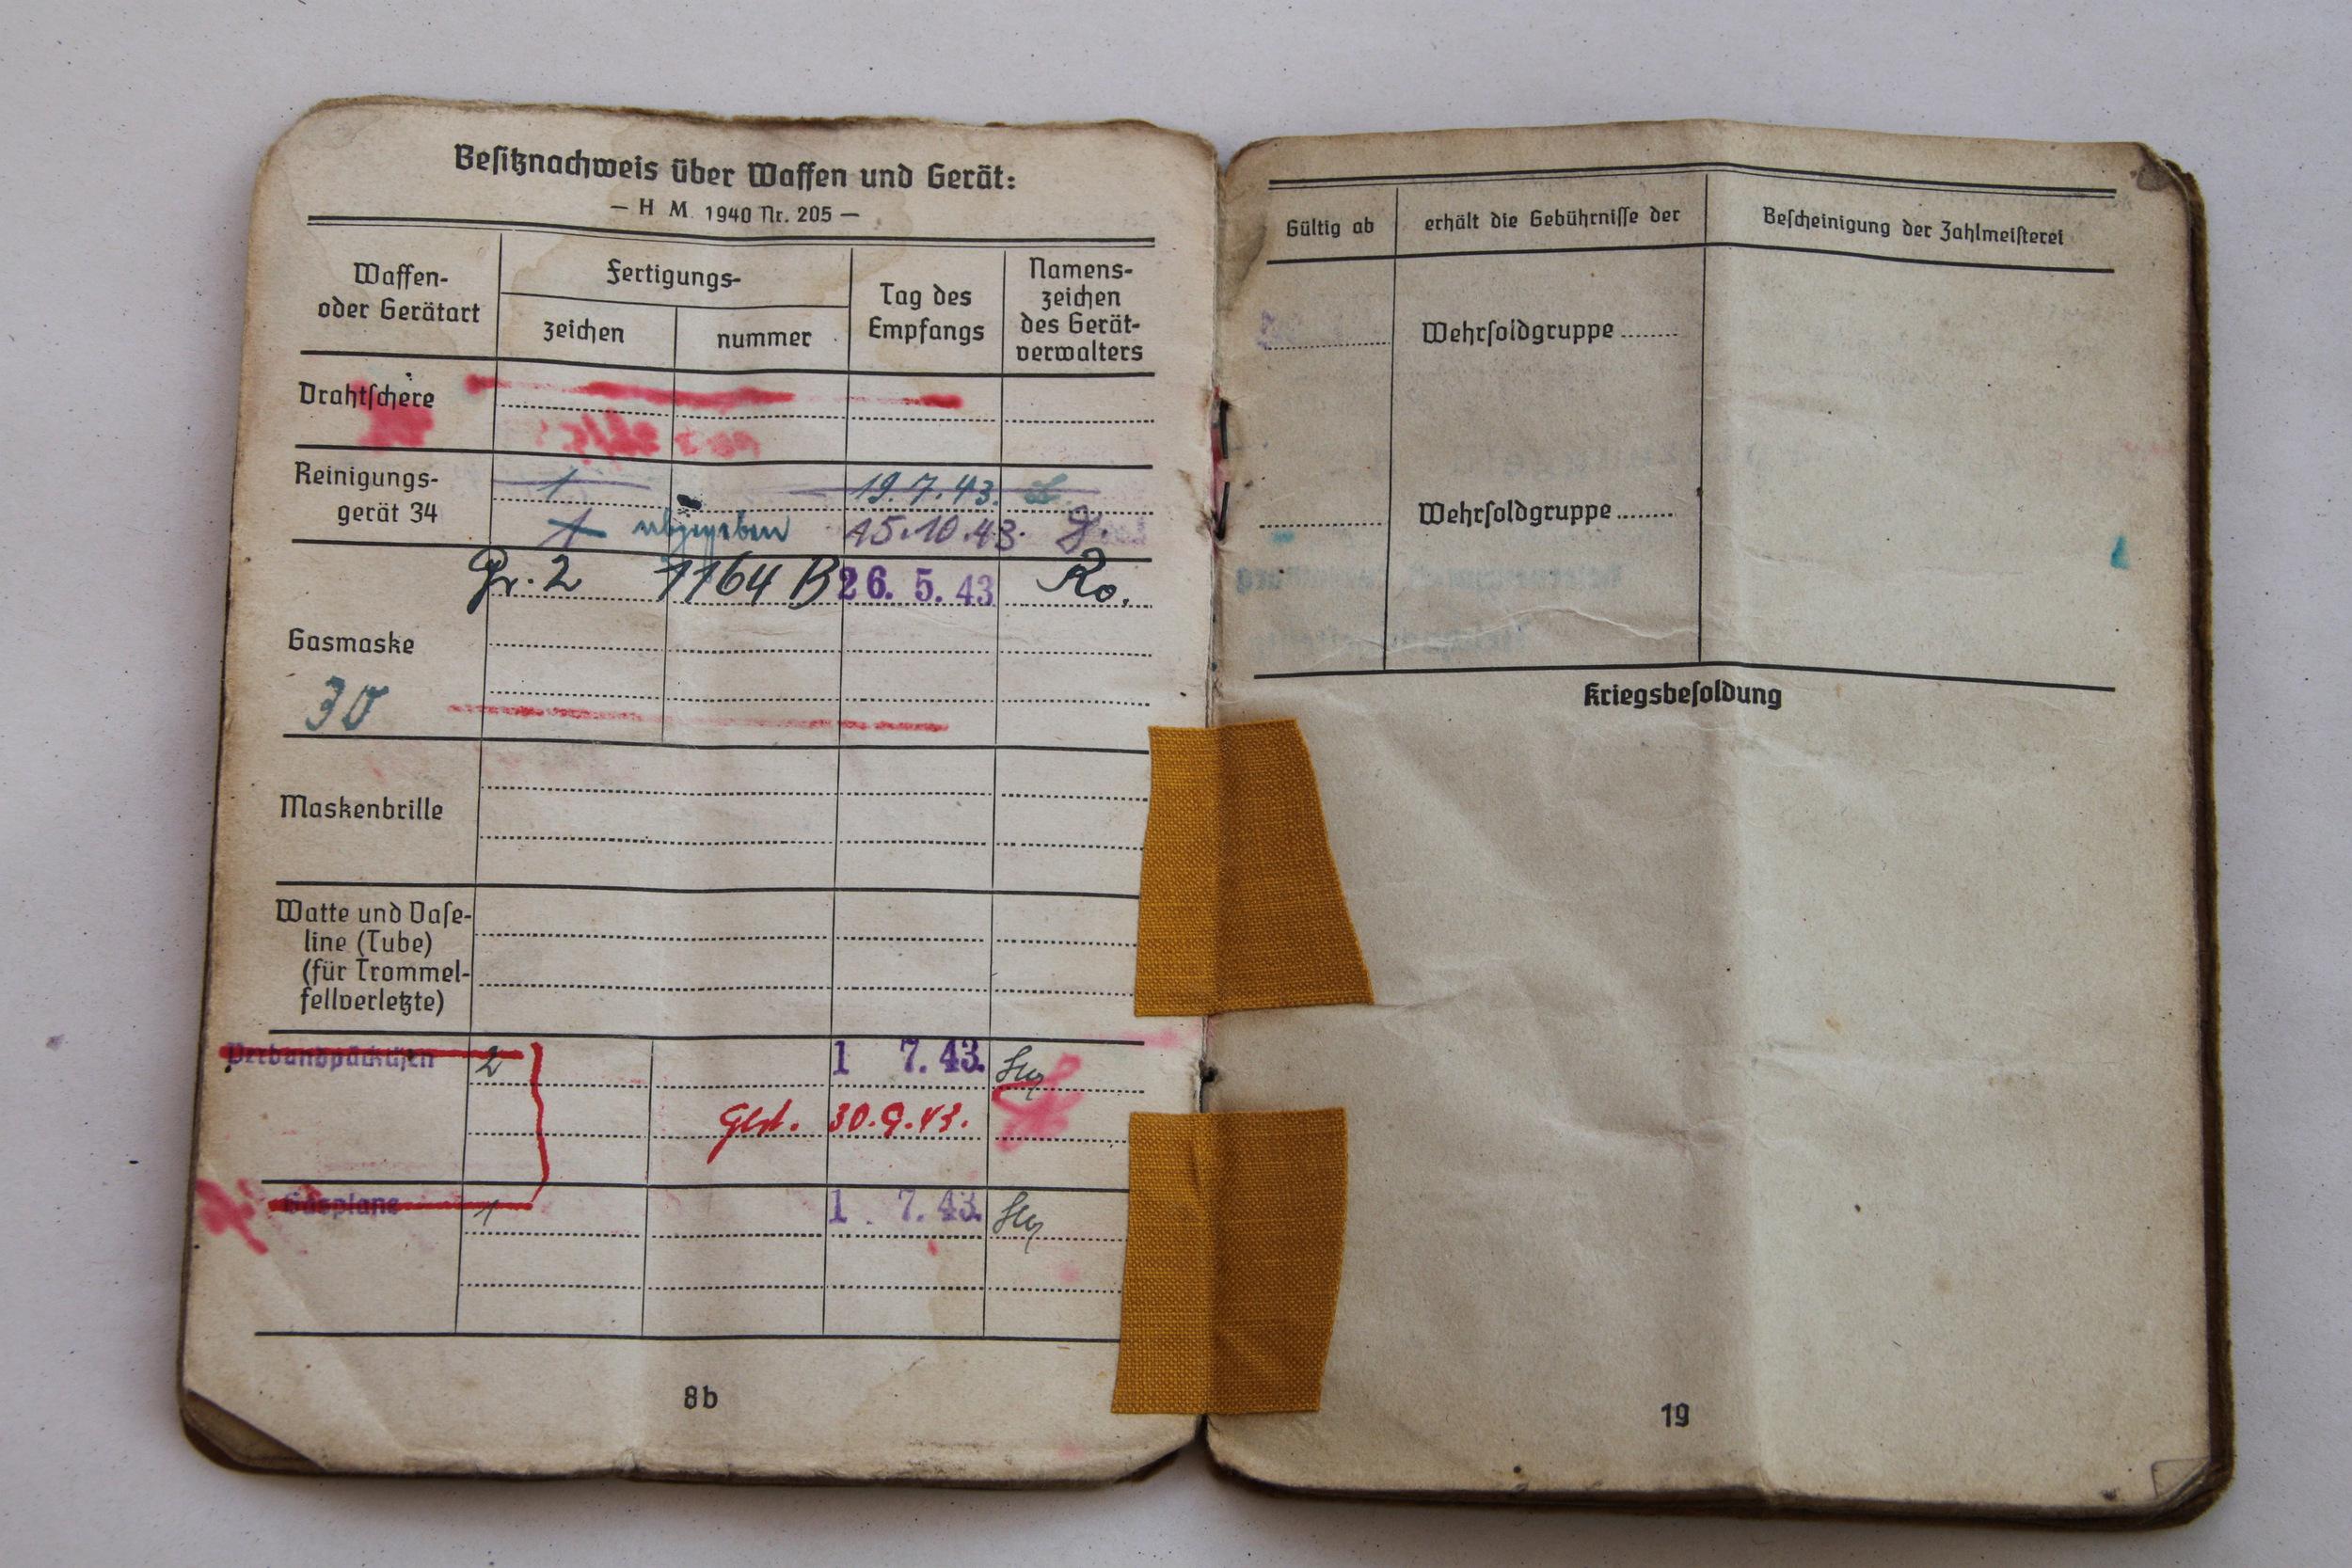 Besitznachweis über Waffen und Gerät:
— H M. 1940 Nr. 205 —
Waffen-
oder Gerätart
Fertigungs-
zeichen
nummer
Tag des
Empfangs
Namens-
zeichen
des Gerät-
verwalters
Drahtschere
Reinigungs-
gerät 34
1 19.7.43.
1 abgegeben 15.10.43.
Gr. 2 1164 B 26. 5. 43 Ro.
Gasmaske
30
Maskenbrille
Watte und Vase-
line (Tube)
(für Trommel-
fellverletzte)
Verbandpäckchen 2 1 7. 43.
30.9.43.
Gasplane 1 1. 7. 43.
8b
Gültig ab
erhält die Gebührnisse der
Bescheinigung der Zahlmeisterei
Wehrsoldgruppe ........
Wehrsoldgruppe ........
Kriegsbesoldung
19